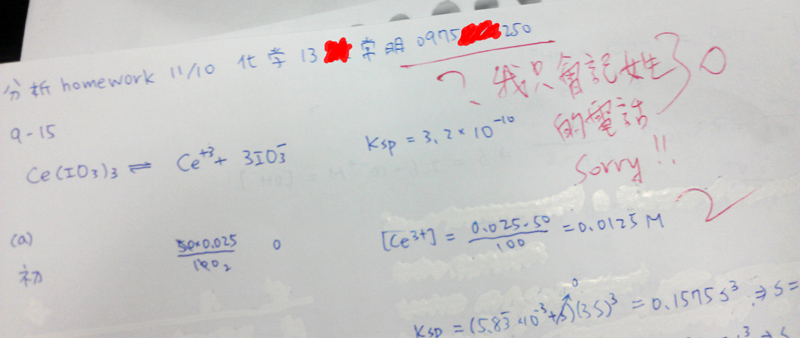 分析 homework 11/10 化学 13 常明 0975 250
? 我只會記女生 }0
的電話
sorry!!
9-15
Ce(IO3)3 ⇌ Ce+3 + 3IO3- Ksp = 3.2×10-10
(a) 50×0.025 / 100 0 [Ce3+] = 0.025·50 / 100 = 0.0125 M
初
Ksp = (5.85×10-3+S)(3S)3 = 0.1575S3 ⇒ S=